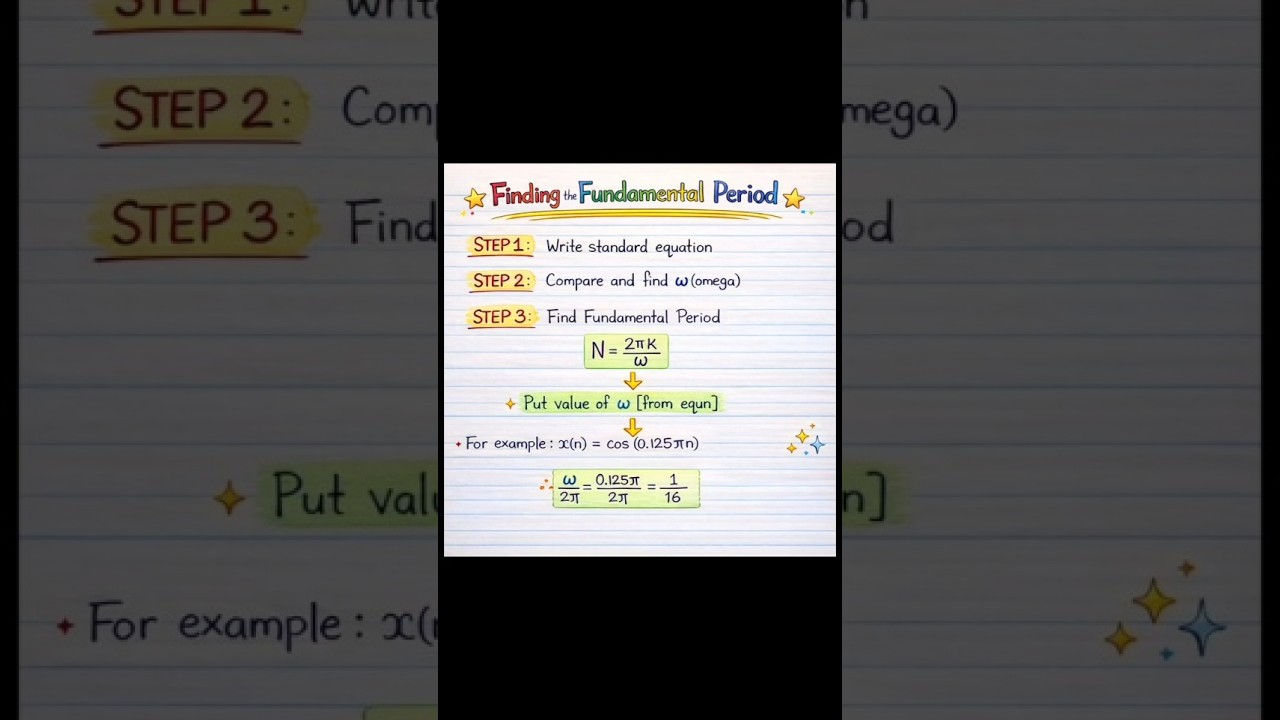 STEP 1:
STEP 2:
STEP 3:
Finding the Fundamental Period
STEP 1: Write standard equation
STEP 2: Compare and find ω (omega)
STEP 3: Find Fundamental Period
N = 2πK / ω
Put value of ω [from equn]
For example : x(n) = cos (0.125πn)
∴ ω/2π = 0.125π/2π = 1/16
Put
n]
For example : x(